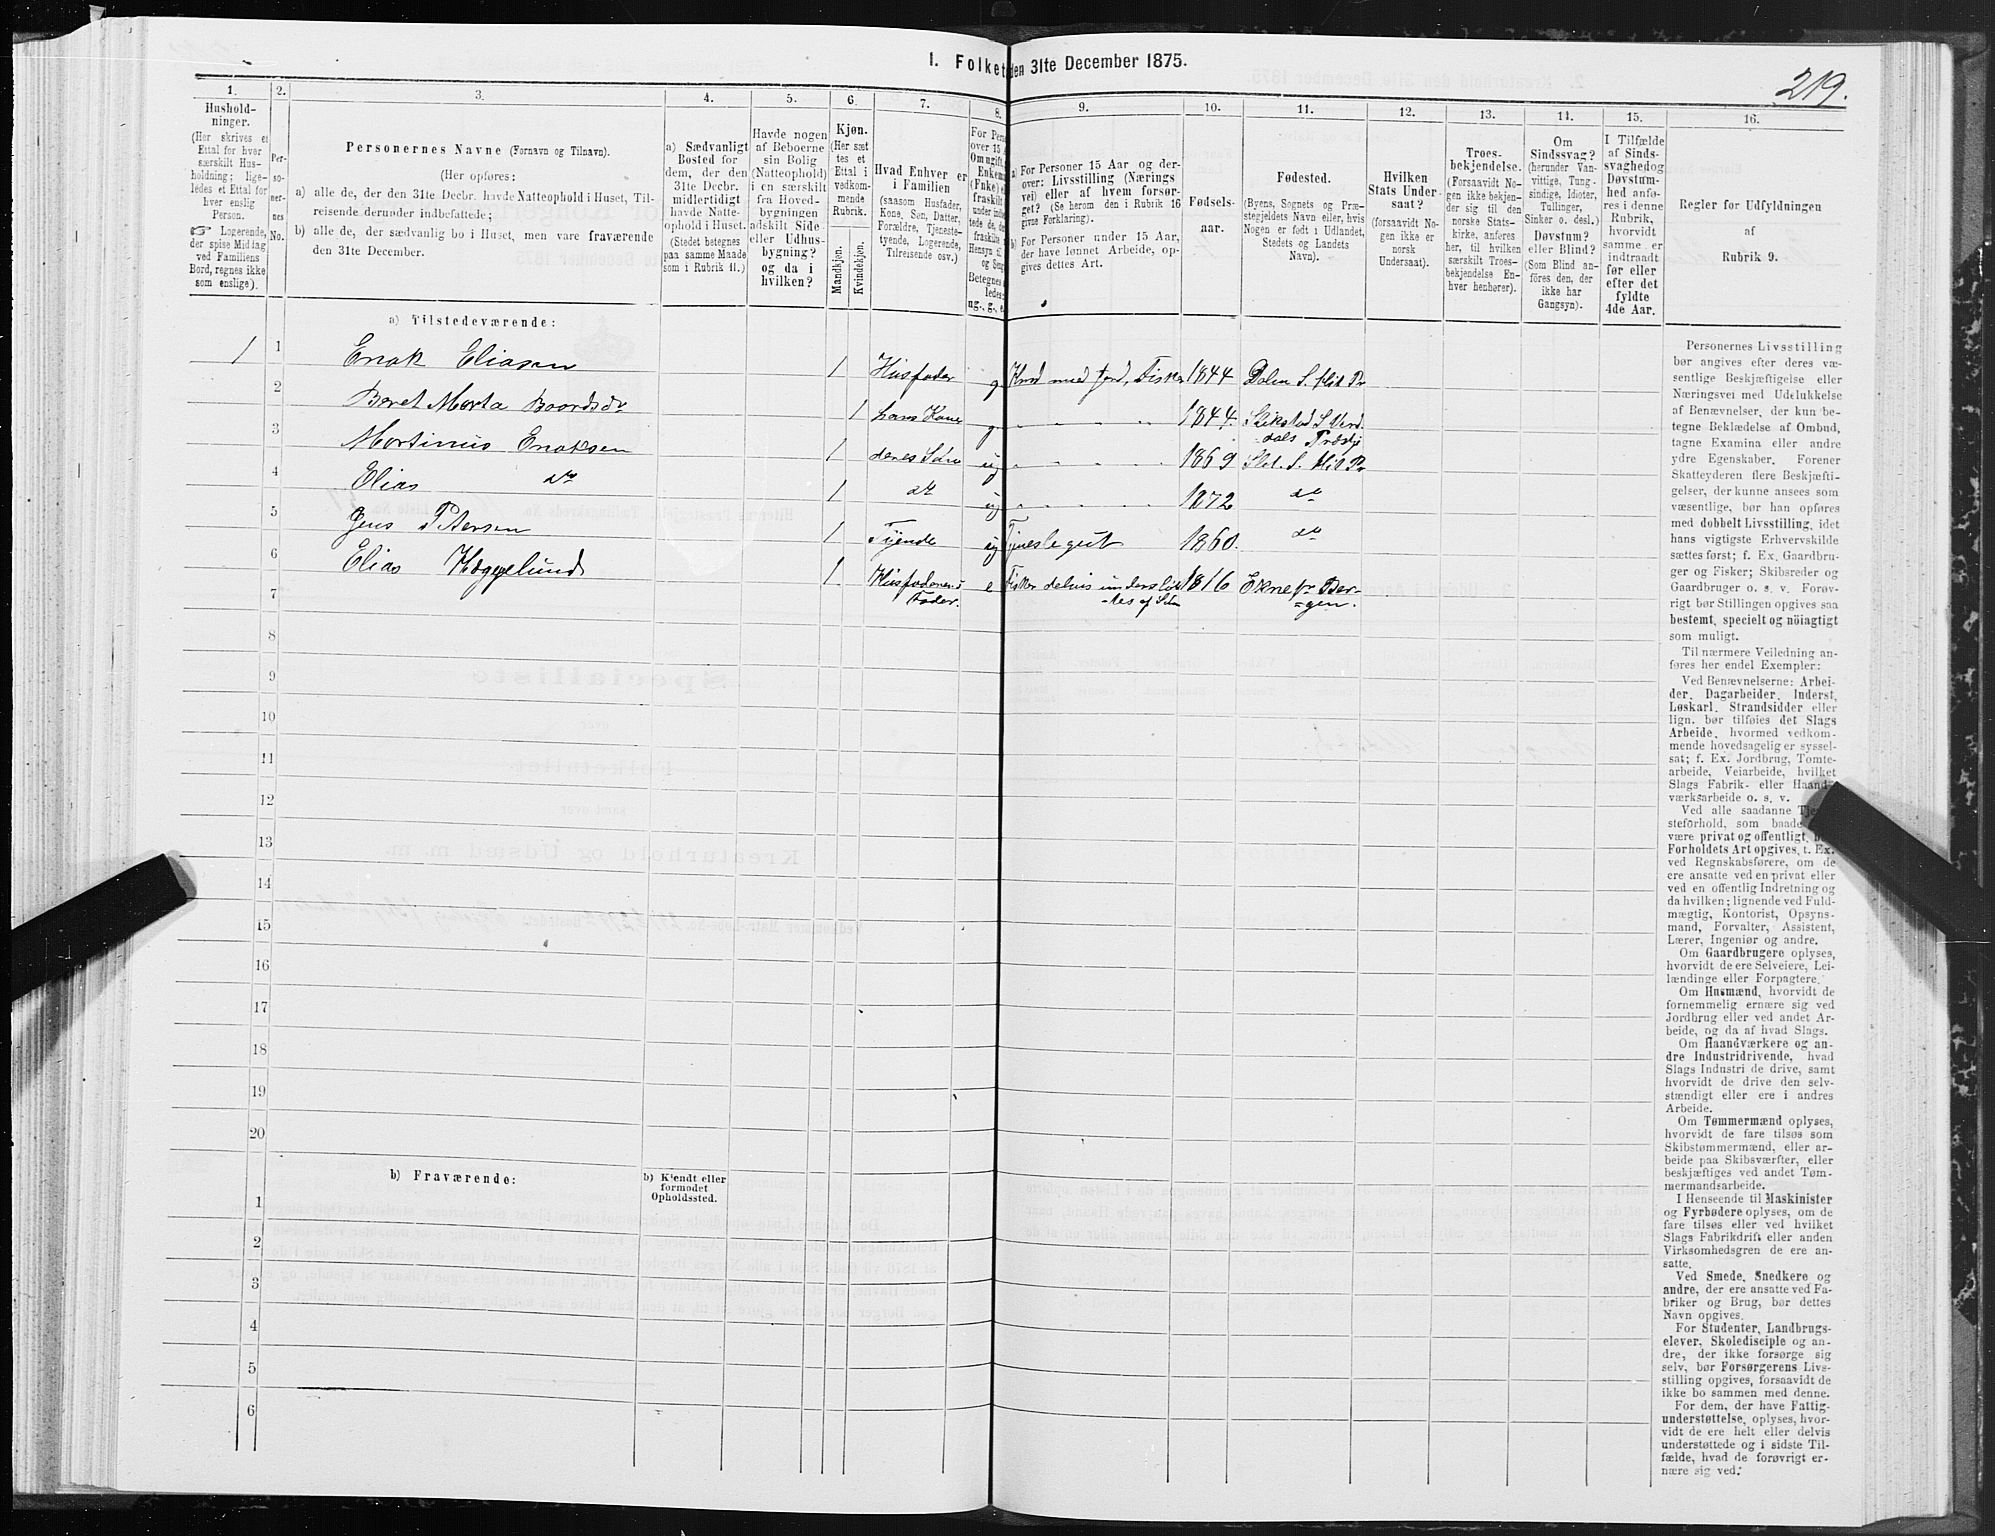 219.
I. Folket den 31te December 1875.
1. 2. 3. 4. 5. 6. 7. 8. 9. 10. 11. 12. 13. 14. 15. 16.
Hushold-
ninger.
(Her skrives et
Ettal for hver
særskilt Hus-
holdning; lige-
ledes et Ettal for
hver enslig
Person.
☞ Logerende,
der spise Middag
ved Familiens
Bord, regnes ikke
som enslige).
Per-
so-
ner-
nes
No.
Personernes Navne (Fornavn og Tilnavn).
(Her opføres:
a) alle de, der den 31te Decbr. havde Natteophold i Huset, Til-
reisende derunder indbefattede;
b) alle de, der sædvanlig bo i Huset, men vare fraværende
den 31te December.
a) Sædvanligt
Bosted for
dem, der den
31te Decbr.
midlertidigt
havde Natte-
ophold i Huset.
(Stedet betegnes
paa samme Maade
som i Rubrik 11.)
Havde nogen
af Beboerne
sin Bolig
(Natteophold)
i en særskilt
fra Hoved-
bygningen
adskilt Side-
eller Udhus-
bygning?
og da i
hvilken?
Kjøn.
(Her sæt-
tes et
Ettal i
vedkom-
mende
Rubrik.
Mandkjøn.
Kvindekjøn.
Hvad Enhver er
i Familien
(saasom Husfader,
Kone, Søn, Datter,
Forældre, Tjeneste-
tyende, Logerende,
Tilreisende osv.)
For Pers
over 15 A
Om ugift,
Enkem
(Enke) el
fraskilt
ug., g., e
a) For Personer 15 Aar og der-
over: Livsstilling (Nærings-
vei) eller af hvem forsør-
get? (Se herom den i Rubrik 16
givne Forklaring).
b) For Personer under 15 Aar,
der have lønnet Arbeide, op-
gives dettes Art.
Fødsels-
aar.
Fødested.
(Byens, Sognets og Præ-
stegjeldets Navn eller, hvis
Nogen er født i Udlandet,
Stedets og Landets
Navn).
Hvilken
Stats Under-
saat?
(forsaavidt No-
gen ikke er
norsk
Undersaat).
Troes-
bekjendelse.
(Forsaavidt No-
gen ikke bekjen-
der sig til den
norske Stats-
kirke, anføres
her, til hvilken
særskilt Troes-
bekjendelse En-
hver henhører).
Om
Sindssvag?
(herunder Van-
vittige, Tung-
sindige, Idioter,
Tullinger,
Sinker o. desl.)
Døvstum?
eller Blind?
(Som Blind an-
føres den, der
ikke har
Gangsyn).
I Tilfælde
af Sinds-
svaghed og
Døvstum-
hed anfø-
res i denne
Rubrik,
hvorvidt
samme er
indtraadt
før eller
efter det
fyldte
4de Aar.
Regler for Udfyldningen
af
Rubrik 9.
a) Tilstedeværende:
1 1 Enok Eliasen 1 Husfader g Husd med Jord, Fisker 1844 Dolm S. Hit Pr
2 Beret Marta Baardsdr 1 hans Kone g " 1844. Stikstad S Verd
dals Præstgj
3 Martinus Enoksen 1 deres Søn ug " 1869 S. Hit Pr
4 Elias do 1 do ug " 1872 do
5 Jens Petersen 1 Tyende ug Tjenestegut 1860. do
6 Elias Hæggelund 1 Husfaderens
Fader. e Fisker delvis understøt-
tes af Søn 1816 Bergen.
7
8
9
10
11
12
13
14
15
16
17
18
19
20
b) Fraværende:
b) Kjendt eller
formodet
Opholdssted.
1
2
3
4
5
6
Personernes Livsstilling
bør angives efter deres væ-
sentlige Beskjæftigelse eller
Næringsvei med Udelukkelse
af Benævnelser, der kun be-
tegne Beklædelse af Ombud,
tagne Examina eller andre
ydre Egenskaber. Forener
Skatteyderen flere Beskjæfti-
gelser, der kunne ansees som
væsentlige, bør han opføres
med dobbelt Livsstilling, idet
hans vigtigste Erhvervskilde
sættes først; f. Ex. Gaardbru-
ger og Fisker; Skibsreder og
Gaardbruger o. s. v. Forøv-
rigt bør Stillingen opgives saa
bestemt, specielt og nöiagtigt
som muligt.
Til nærmere Veiledning an-
føres her endel Exempler:
Ved Benævnelserne: Arbei-
der, Dagarbeider, Inderst,
Løskarl, Strandsidder eller
lign. bør tilføies det Slags
Arbeide, hvormed vedkom-
mende hovedsagelig er syssel-
sat; f. Ex. Jordbrug, Tomte-
arbeide, Veiarbeide, hvilket
Slags Fabrik- eller Haand-
værksarbeide o. s. v.
Ved alle saadanne Tje
steforhold, som baade
være privat og offentligt, bør
Forholdets Art opgives, t. Ex.
ved Regnskabsførere, om de
ere ansatte ved en privat eller
ved en offentlig Indretning og
da hvilken; lignende ved Fuld-
mægtig, Kontorist, Opsyns-
mand, Forvalter, Assistent,
Lærer, Ingeniør og andre.
Om Gaardbrugere oplyses,
hvorvidt de ere Selveiere, Lei-
lændinge eller Forpagtere.
Om Husmænd, hvorvidt de
fornemmelig ernære sig ved
Jordbrug eller ved andet Ar-
beide, og da af hvad Slags.
Om Haandværkere og an-
dre Industridrivende, hvad
Slags Industri de drive, samt
hvorvidt de drive den selv-
stændigt eller ere i andres
Arbeide.
Om Tømmermænd oplyses,
hvorvidt de fare tilsøs som
Skibstømmermænd, eller ar-
beide paa Skibsværfter, eller
beskjæftiges ved andet Tøm-
mermandsarbeide.
I Henseende til Maskinister
og Fyrbødere oplyses, om de
fare tilsøs eller ved hvilket
Slags Fabrikdrift eller anden
Virksomhedsgren de ere an-
satte.
Ved Smede, Snedkere og
andre, der ere ansatte ved Fa-
briker og Brug, bør dettes
Navn opgives.
For Studenter, Landbrugs-
elever, Skoledisciple og an-
dre, der ikke forsørge sig
selv, bør Forsørgerens Livs-
stilling opgives, forsaavidt de
ikke bo sammen med denne.
For dem, der have Fattig-
understøttelse, oplyses, hvor-
vidt de ere helt eller delvis
understøttede og i sidste Til-
fælde, hvad de forøvrigt er-
nære sig ved.